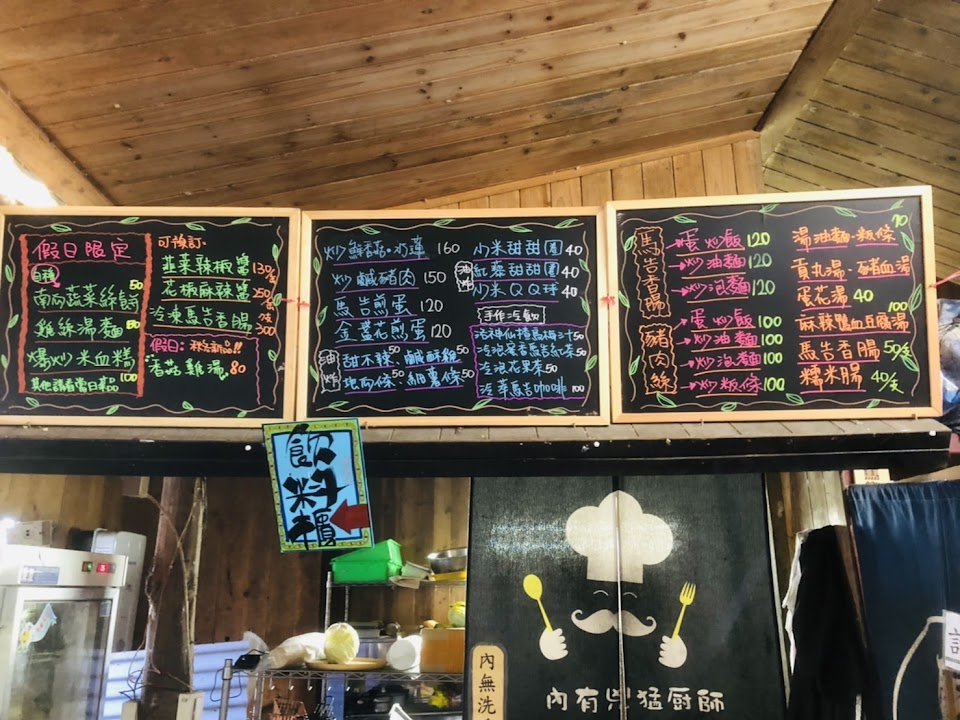 假日限定
自種
南瓜蔬菜絲
50
雞絲湯麵 80
爆炒米血糕 100
其他請看當日
可預訂:
韭菜辣椒醬 130
花椒麻辣醬 250
冷凍馬告香腸 300
假日:
香菇雞湯.80
炒鮮香菇·水蓮 160
炒鹹豬肉 150
馬告煎蛋 120
金針花煎蛋 120
油炸
甜不辣 50 鹹酥雞 50
地瓜條 50 細薯條 50
油炸
小米甜甜圈 40
紅藜甜甜圈 40
小米QQ球 40
手作冷飲
洛神仙楂烏梅汁50
50
冷泡花果茶 50
冷萃馬告咖啡 100
馬告香腸
蛋炒飯 120
炒油麵 120
炒泡麵 120
豬肉絲
蛋炒飯 100
炒油麵 100
炒泡麵 100
炒粄條 100
湯油麵·粄條 70
貢丸湯·豬血湯
蛋花湯 40
麻辣鴨血豆腐湯 100
馬告香腸 50/支
糯米腸 40/支
飲料櫃
內有兇猛廚師
內無洗